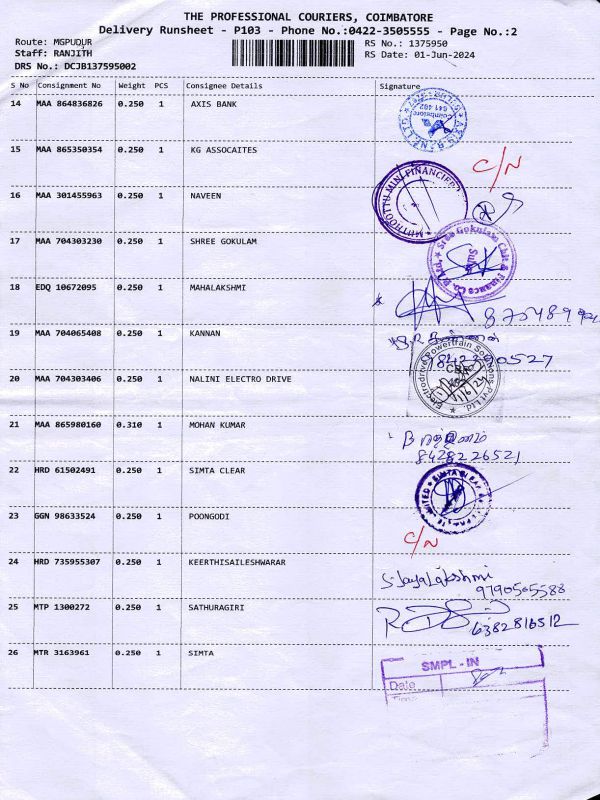 THE PROFESSIONAL COURIERS, COIMBATORE
Delivery Runsheet - P103 - Phone No.:0422-3505555 - Page No.:2
Route: MGPUDUR
RS No.: 1375950
Staff: RANJITH
RS Date: 01-Jun-2024
DRS No.: DCJB137595002
S No Consignment No Weight PCS Consignee Details Signature
14 MAA 864836826 0.250 1 AXIS BANK
Coimbatore
641 402
15 MAA 865350354 0.250 1 KG ASSOCAITES
C/N
16 MAA 301455963 0.250 1 NAVEEN
MUTHOOTTU MINI FINANCIERS
17 MAA 704303230 0.250 1 SHREE GOKULAM
Sree Gokulam Chit & Finance Co. P. Ltd.
18 EDQ 10672095 0.250 1 MAHALAKSHMI
19 MAA 704065408 0.250 1 KANNAN
7842290527
20 MAA 704303406 0.250 1 NALINI ELECTRO DRIVE
Electrodrive Powertrain Solutions Pvt Ltd.
CBE
21 MAA 865980160 0.310 1 MOHAN KUMAR
8428226521
22 HRD 61502491 0.250 1 SIMTA CLEAR
SIMTA CLEAR
23 GGN 98633524 0.250 1 POONGODI
C/N
24 HRD 735955307 0.250 1 KEERTHISAILESHWARAR
S. JayaLakshmi
9790505588
25 MTP 1300272 0.250 1 SATHURAGIRI
6382816512
26 MTR 3163961 0.250 1 SIMTA
SMPL - IN
Date